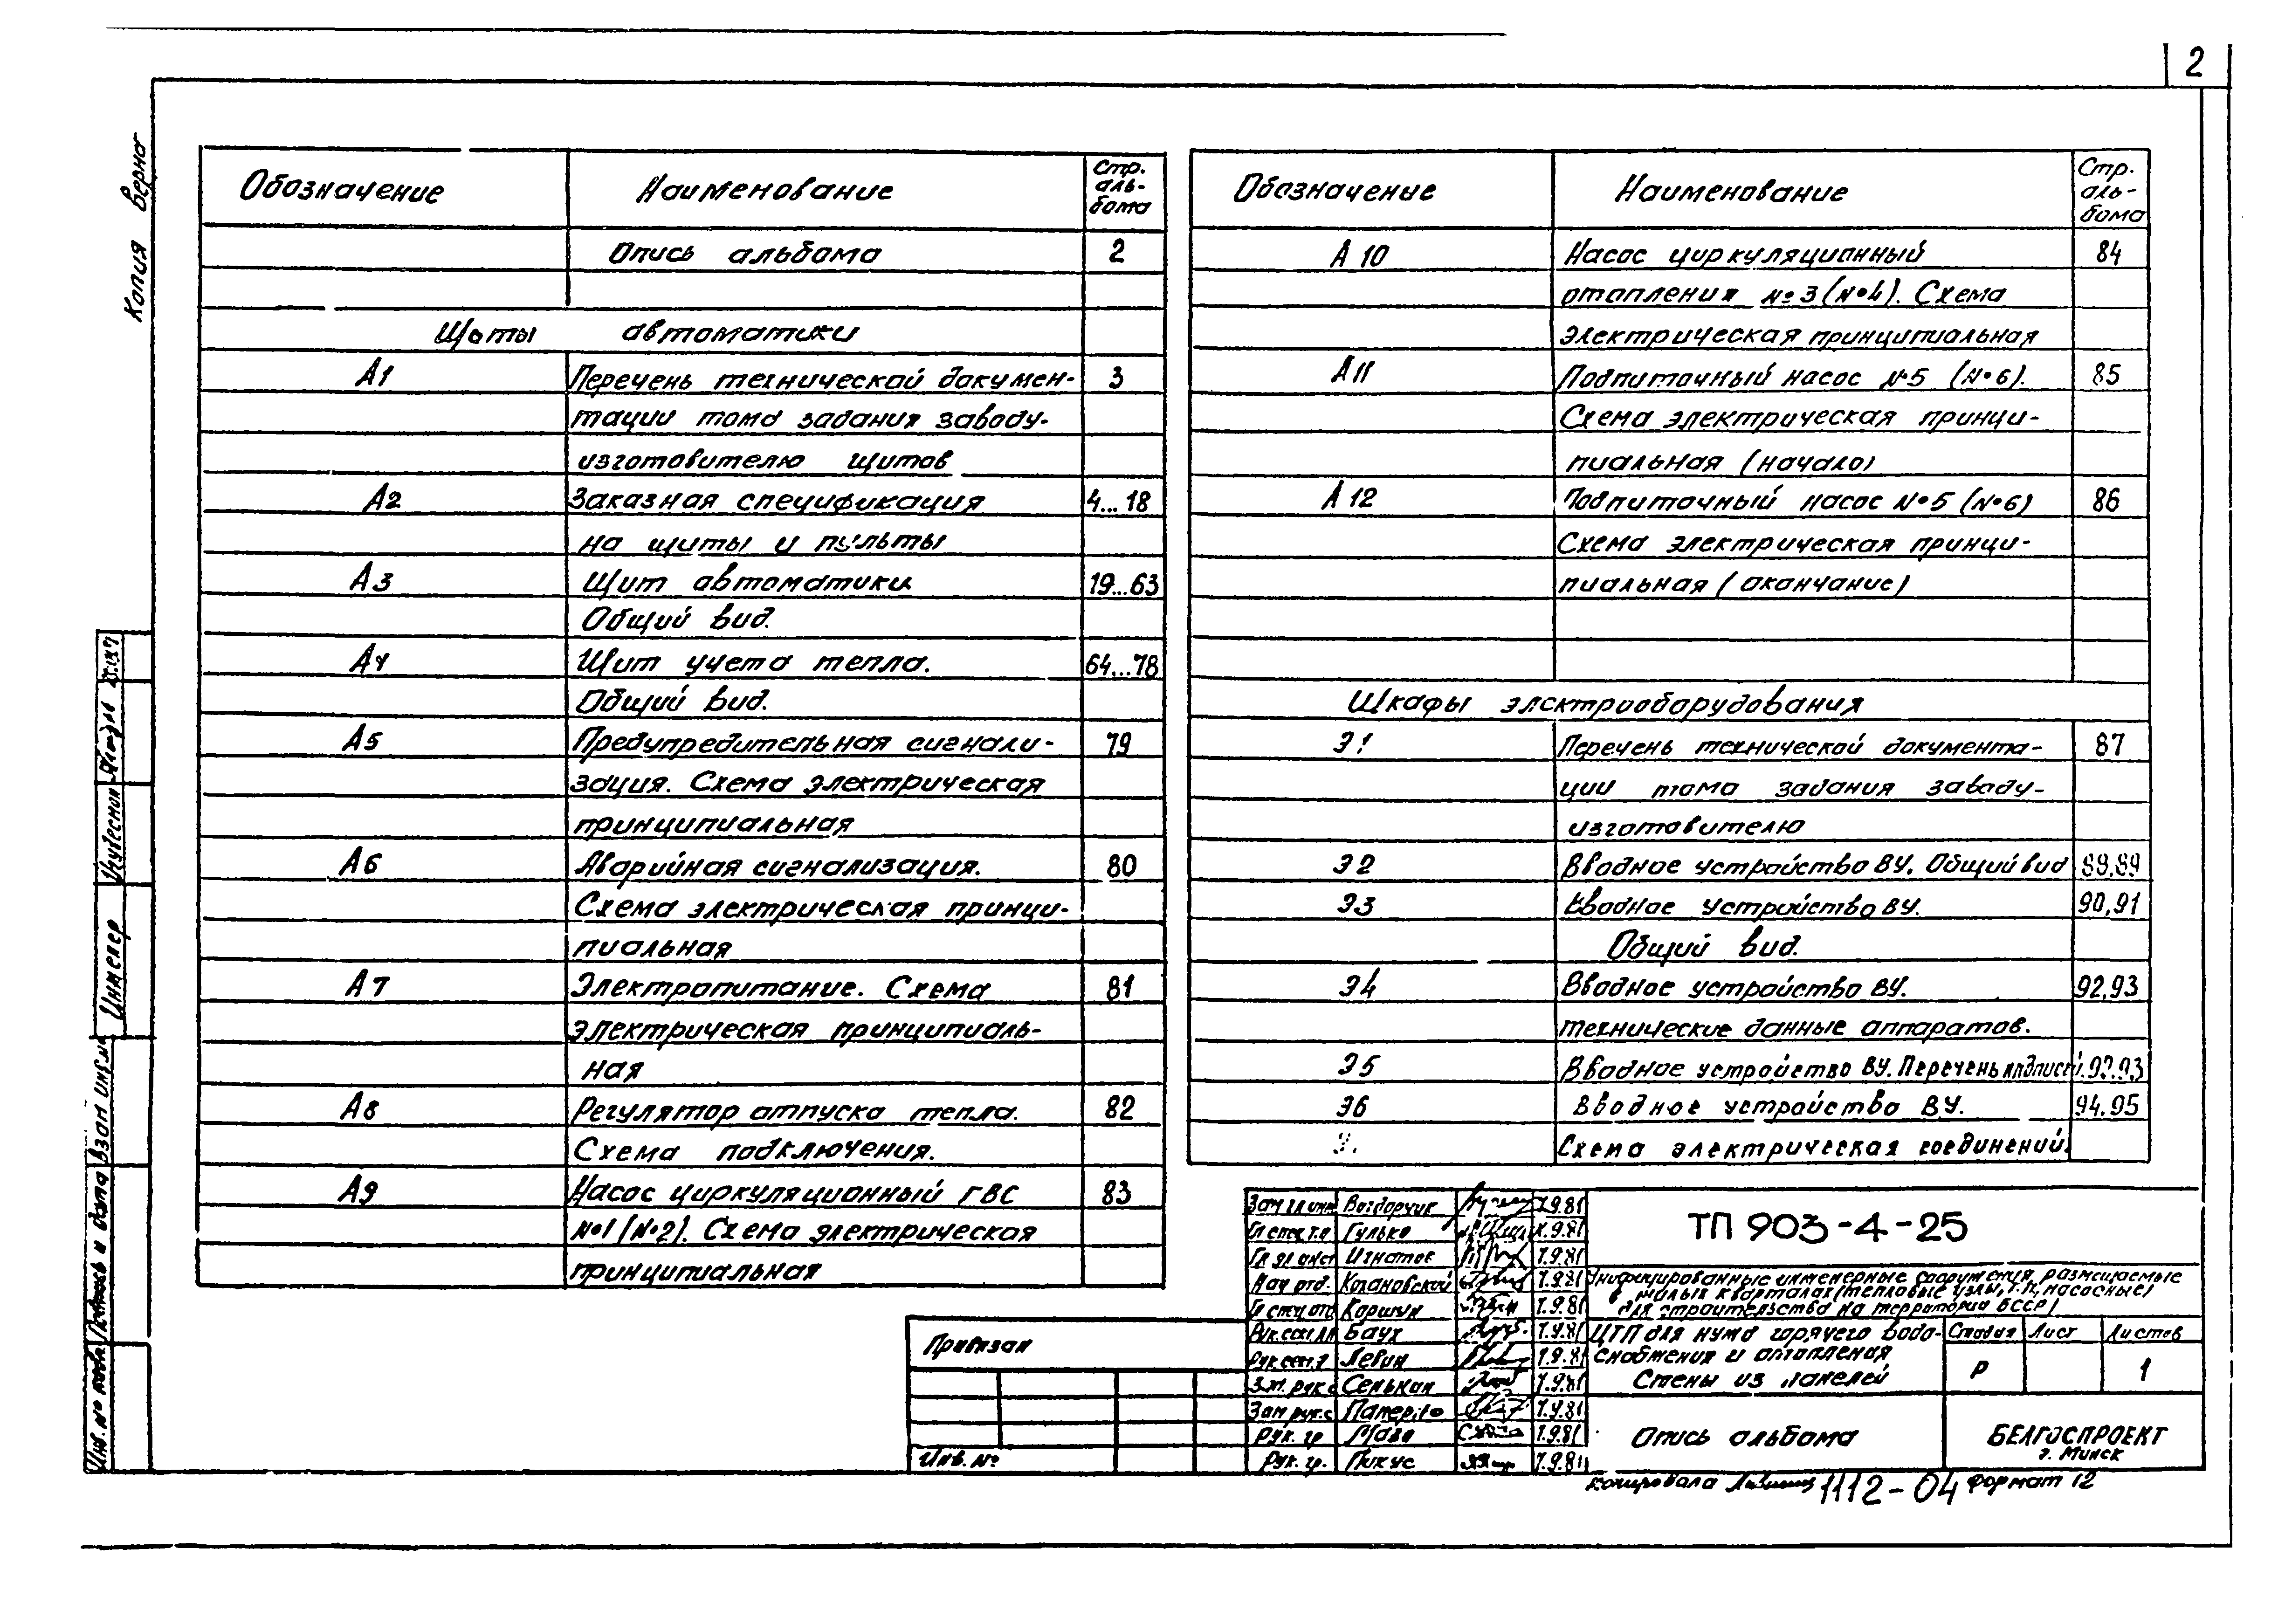 2
Копия верна
Обозначение Наименование Стр. аль- бома
Опись альбома 2
Щиты автоматики
А1 Перечень технической докумен- 3
тации тома задания заводу-
изготовителю щитов
А2 Заказная спецификация 4...18
на щиты и пульты
А3 Щит автоматики 19...63
Общий вид.
А4 Щит учета тепла. 64...78
Общий вид.
А5 Предупредительная сигнали- 79
зация. Схема электрическая
принципиальная
А6 Аварийная сигнализация. 80
Схема электрическая принци-
пиальная
А7 Электропитание. Схема 81
электрическая принципиаль-
ная
А8 Регулятор отпуска тепла. 82
Схема подключения.
А9 Насос циркуляционный ГВС 83
№1 (№2). Схема электрическая
принципиальная
Обозначение Наименование Стр. аль- бома
А10 Насос циркуляционный 84
отопления №3 (№4). Схема
электрическая принципиальная
А11 Подпиточный насос №5 (№6). 85
Схема электрическая принци-
пиальная (начало)
А12 Подпиточный насос №5 (№6) 86
Схема электрическая принци-
пиальная (окончание)
Шкафы электрооборудования
Э1 Перечень технической документа- 87
ции тома задания заводу-
изготовителю
Э2 Вводное устройство ВУ. Общий вид 88,89
Э3 Вводное устройство ВУ. 90,91
Общий вид.
Э4 Вводное устройство ВУ. 92,93
технические данные аппаратов.
Э5 Вводное устройство ВУ. Перечень надписей. 92.93
Э6 Вводное устройство ВУ. 94.95
Схема электрическая соединений.
Гулько
Игнатов
Нач отд. Кагановский 1.9.81
Коршун 1.9.81
Баух 1.9.81
Левин 1.9.81
Сенькин 1.9.81
Зам рук.с 1.9.81
Рук. гр Мазо 1.9.81
Рук. гр. Пикус 1.9.81
ТП 903-4-25
Унифицированные инженерные сооружения, размещаемые
в жилых кварталах (тепловые узлы, Т.П, насосные)
для строительства на территории БССР)
ЦТП для нужд горячего водо-
снабжения и отопления
Стены из панелей
Стадия Лист Листов
Р 1
Опись альбома
БЕЛГОСПРОЕКТ
г. Минск
Привязан
Инв. №
Копировала 1112-04 Формат 12
Инженер
Взам инв.№
Подпись и дата
Инв. № подл